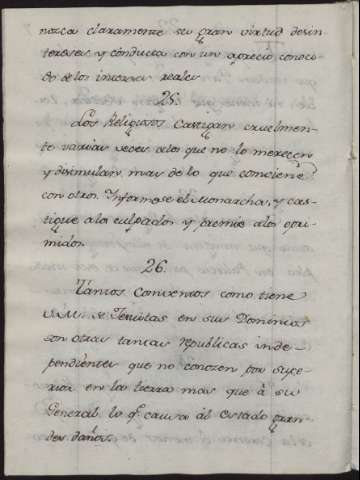 nozca claramente su gran virtud desin-
tereses y conducta con un aprecio conoci-
do de los intereses reales
25.
Los Religiosos castigan cruelmen-
te varias veces a los que no lo merecen
y disimulan mas de lo que conviene
con otros. Informese el Monarcha, y cas-
tigue a los culpados y premie a los opri-
midos.
26.
Tantos Conventos como tiene
V.M. de Jesuitas en sus Dominios
son otras tantas republicas inde-
pendientes que no conocen por supe-
rior en la tierra mas que à su
General, lo q.e causa al Estado gran-
des daños.